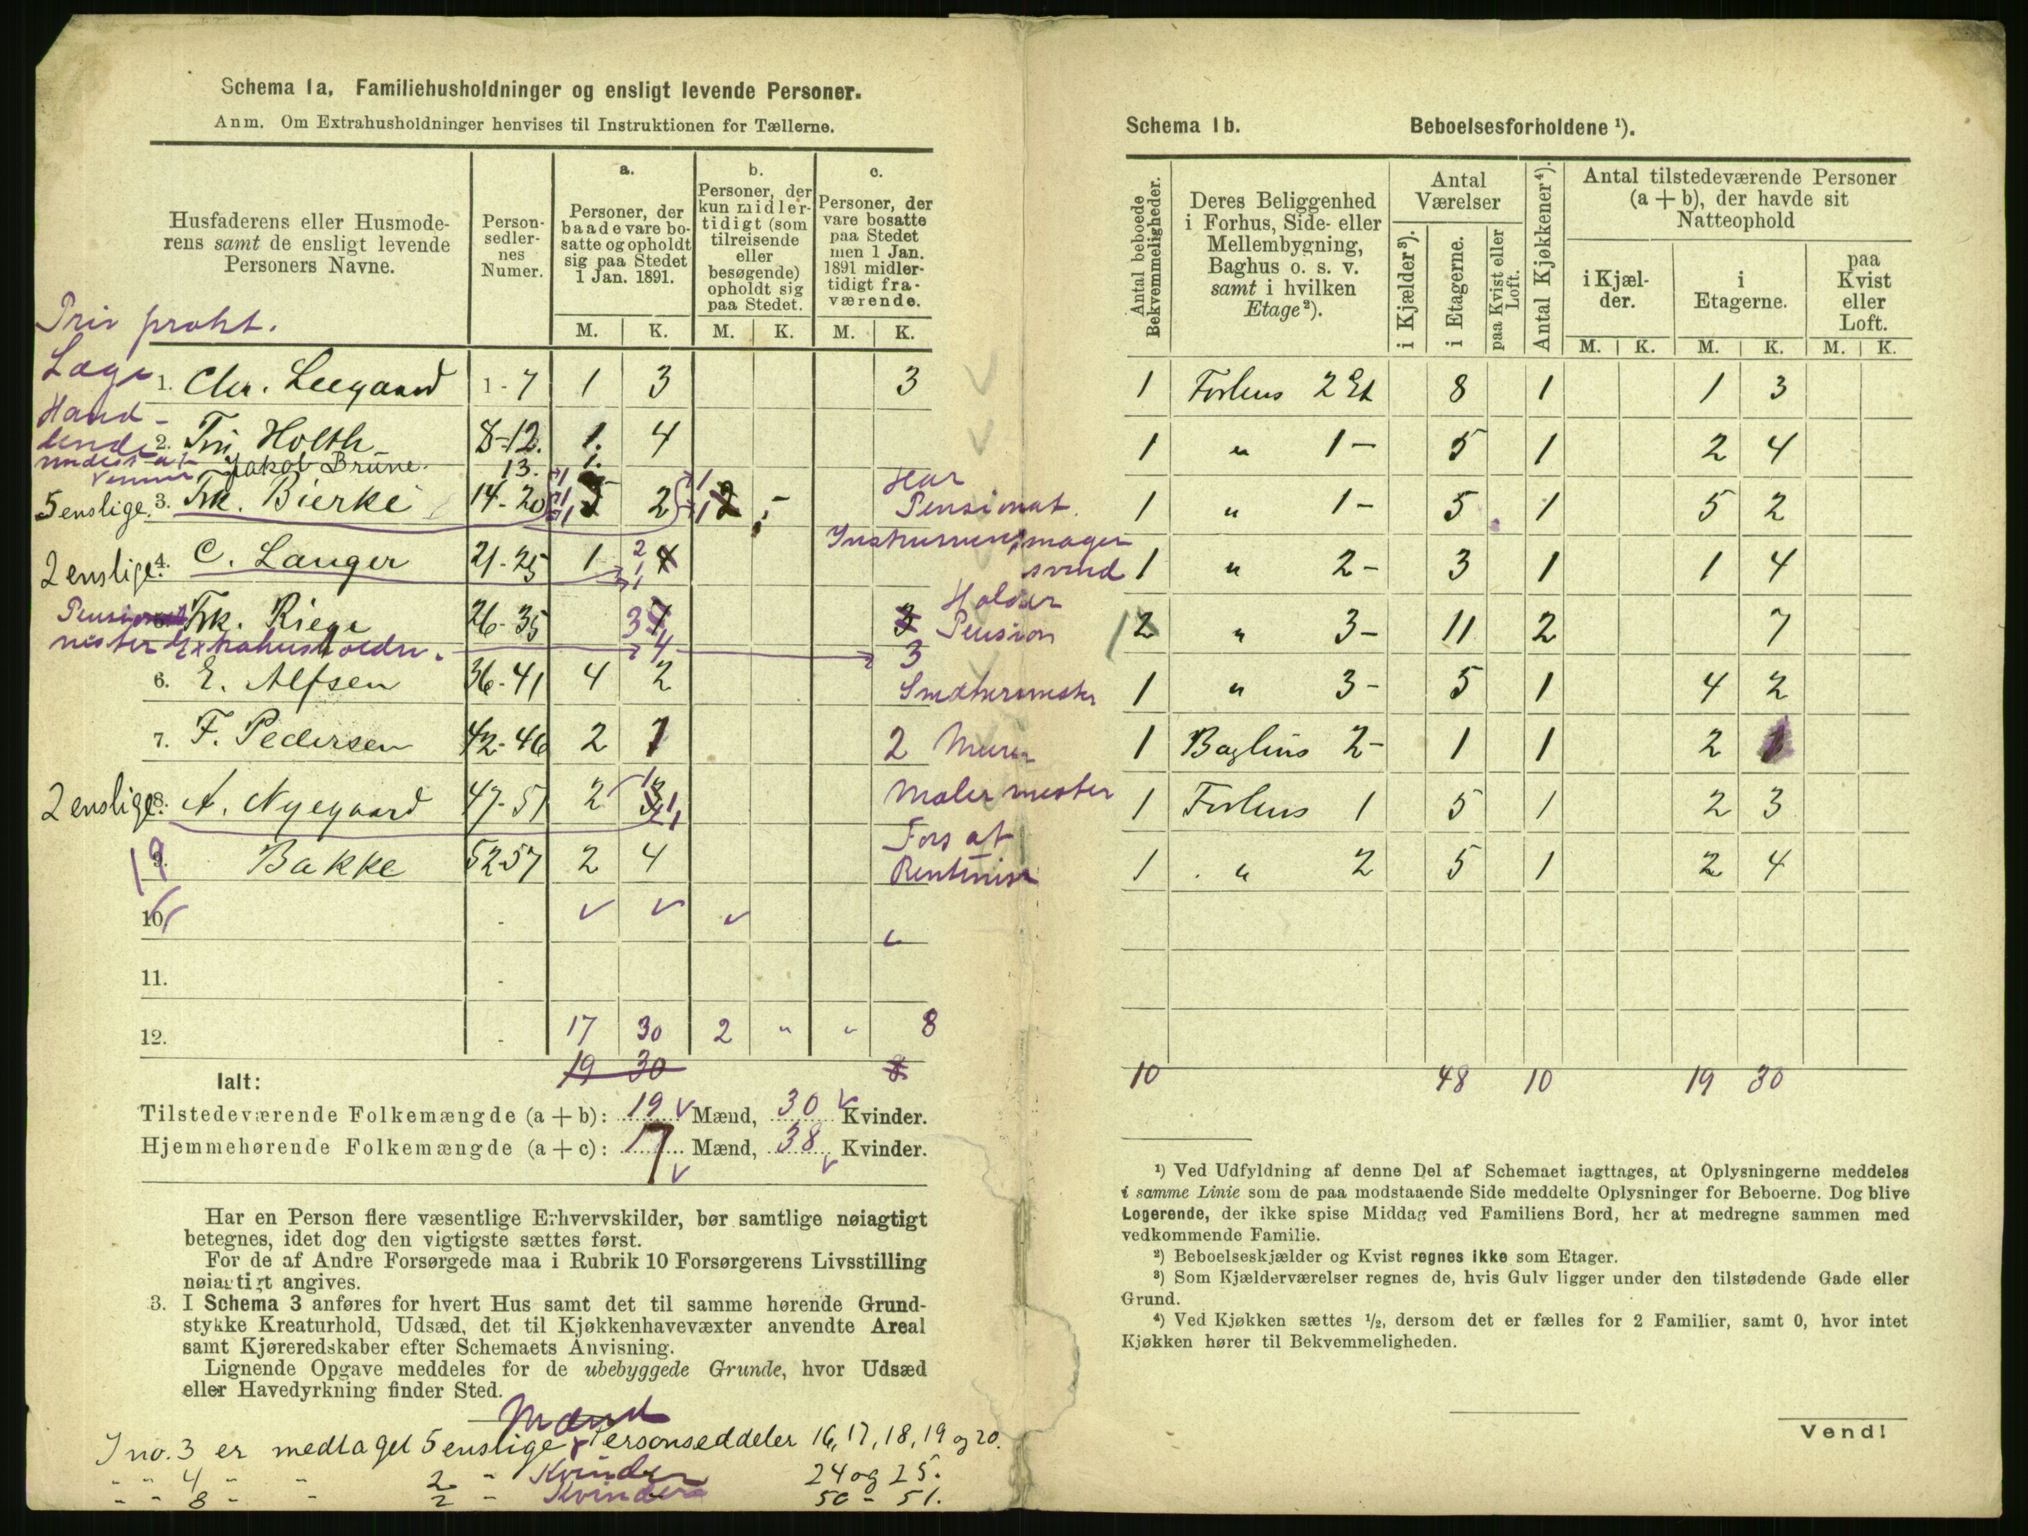 Schema 1a. Familiehusholdninger og ensligt levende Personer.
Anm. Om Extrahusholdninger henvises til Instruktionen for Tællerne.
Husfaderens eller Husmoderens samt de ensligt levende Personers Navne.
Personsedlernes Numer.
a.
Personer, der baade vare bosatte og opholdt sig paa Stedet 1 Jan. 1891.
b.
Personer, der kun midlertidigt (som tilreisende eller besøgende) opholdt sig paa Stedet.
c.
Personer, der vare bosatte paa Stedet men 1 Jan. 1891 midlertidigt fraværende.
M. K. M. K. M. K.
Priv prakt.
Læge
1. Chr. Leegaard 1-7 1 3 3
Hand-
lende
2. Holth 8-12. 1. 4
Jakob Brune. 13. 1.
5 enslige. 3. Frk. Bierke 14-20 5 2 2 -
Har
Pensionat.
2 enslige. 4. C. Langer 21-25 1 4
Instrumentmager
svend
5. Frk. Riege 26-35 7 3
Holder
Pension
Extrahusholdn. 4 3
6. E. Alfsen 36-41 4 2
7. F. Pedersen 42-46 2 1 2 Murer
2 enslige. 8. A. Nyegaard 47-51 2 3 Malermester
9. Bakke 52-57 2 4
Fors at
10.
11.
12. 17 30 2 " " 8
Ialt: 19 30 8
Tilstedeværende Folkemængde (a + b): 19 Mænd, 30 Kvinder.
Hjemmehørende Folkemængde (a + c): 17 Mænd, 38 Kvinder.
Har en Person flere væsentlige Erhvervskilder, bør samtlige nøiagtigt
betegnes, idet dog den vigtigste sættes først.
For de af Andre Forsørgede maa i Rubrik 10 Forsørgerens Livsstilling
nøiagtigt angives.
3. I Schema 3 anføres for hvert Hus samt det til samme hørende Grund-
stykke Kreaturhold, Udsæd, det til Kjøkkenhavevæxter anvendte Areal
samt Kjøreredskaber efter Schemaets Anvisning.
Lignende Opgave meddeles for de ubebyggede Grunde, hvor Udsæd
eller Havedyrkning finder Sted.
Mænd
I no. 3 er medtaget 5 enslige Personseddeler 16, 17, 18, 19 og 20.
" " 4 " " 2 " Kvinder 24 og 25.
" " 8 " " 2 " Kvinder 50 - 51.
Schema 1b. Beboelsesforholdene ¹).
Antal beboede Bekvemmeligheder.
Deres Beliggenhed i Forhus, Side- eller Mellembygning, Baghus o. s. v. samt i hvilken Etage²).
Antal Værelser
i Kjælder³).
i Etagerne.
paa Kvist eller Loft.
Antal Kjøkkener⁴).
Antal tilstedeværende Personer (a + b), der havde sit Natteophold
i Kjælder.
i Etagerne.
paa Kvist eller Loft.
M. K. M. K. M. K.
1 Forhus 2 Et 8 1 1 3
1 " 1 - 5 1 2 4
1 " 1 - 5 1 5 2
1 " 2 - 3 1 1 4
2 " 3 - 11 2 7
1 " 3 - 5 1 4 2
1 Baghus 2 - 1 1 2
1 Forhus 1 5 1 2 3
1 " 2 5 1 2 4
10 48 10 19 30
¹) Ved Udfyldning af denne Del af Schemaet iagttages, at Oplysningerne meddeles
i samme Linie som de paa modstaaende Side meddelte Oplysninger for Beboerne. Dog blive
Logerende, der ikke spise Middag ved Familiens Bord, her at medregne sammen med
vedkommende Familie.
²) Beboelseskjælder og Kvist regnes ikke som Etager.
³) Som Kjælderværelser regnes de, hvis Gulv ligger under den tilstødende Gade eller
Grund.
⁴) Ved Kjøkken sættes ½, dersom det er fælles for 2 Familier, samt 0, hvor intet
Kjøkken hører til Bekvemmeligheden.
Vend!